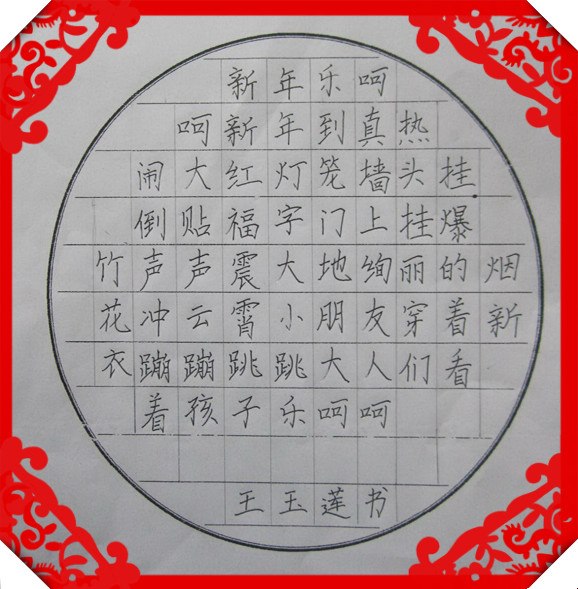 新年乐呵
呵新年到真热
闹大红灯笼墙头挂
倒贴福字门上挂爆
竹声声震大地绚丽的烟
花冲云霄小朋友穿着新
衣蹦蹦跳跳大人们看
着孩子乐呵呵
王玉莲书